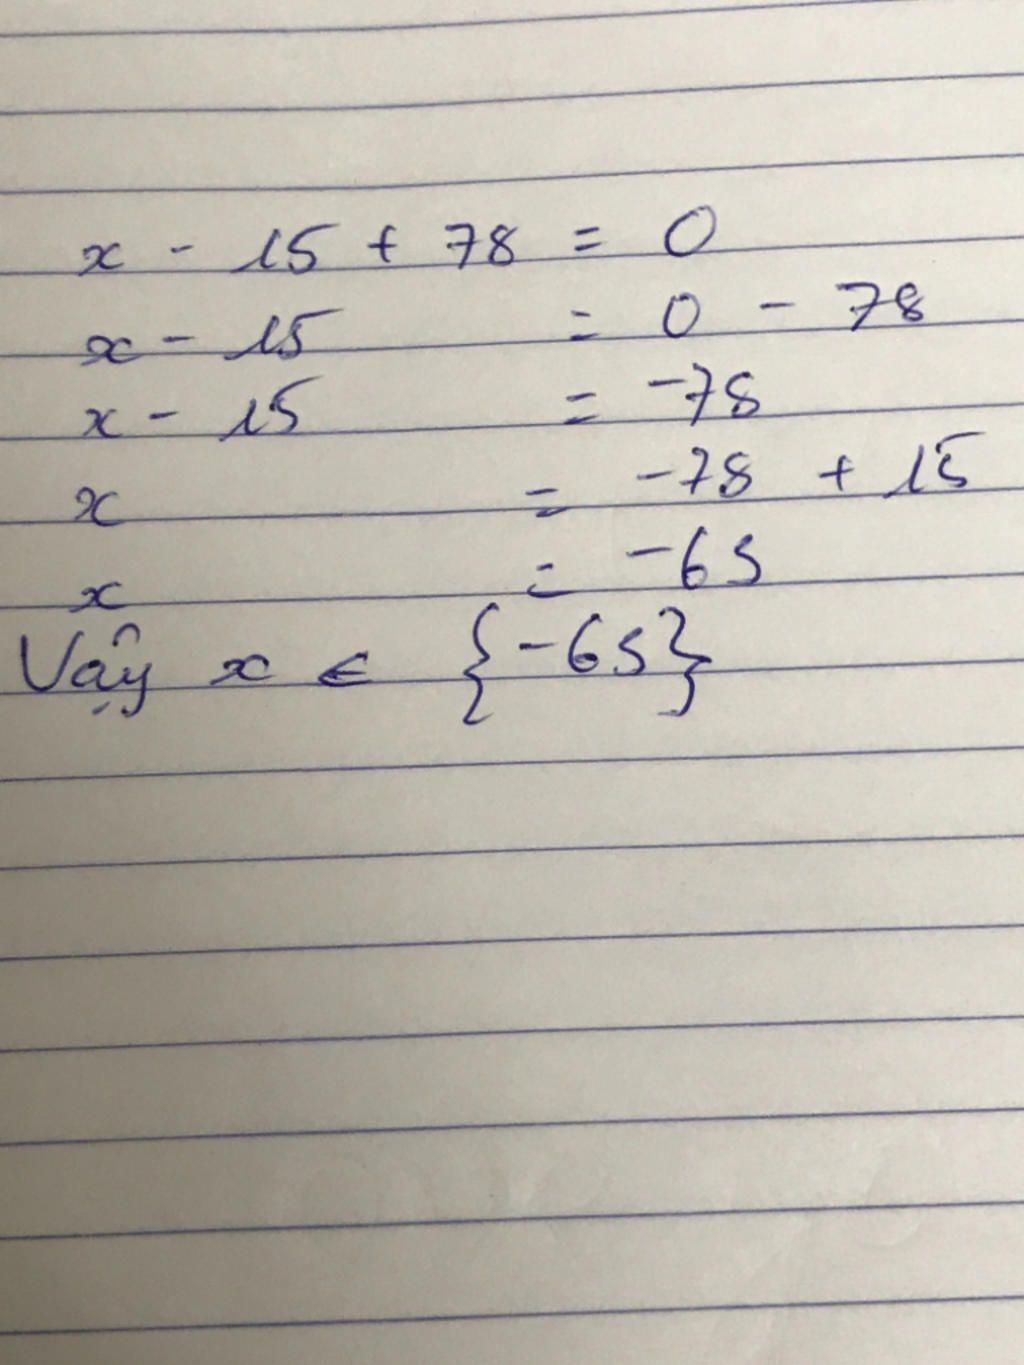 x - 15 + 78 = 0
x - 15 = 0 - 78
x - 15 = -78
x = -78 + 15
x = -63
Vậy x ∈ {-63}